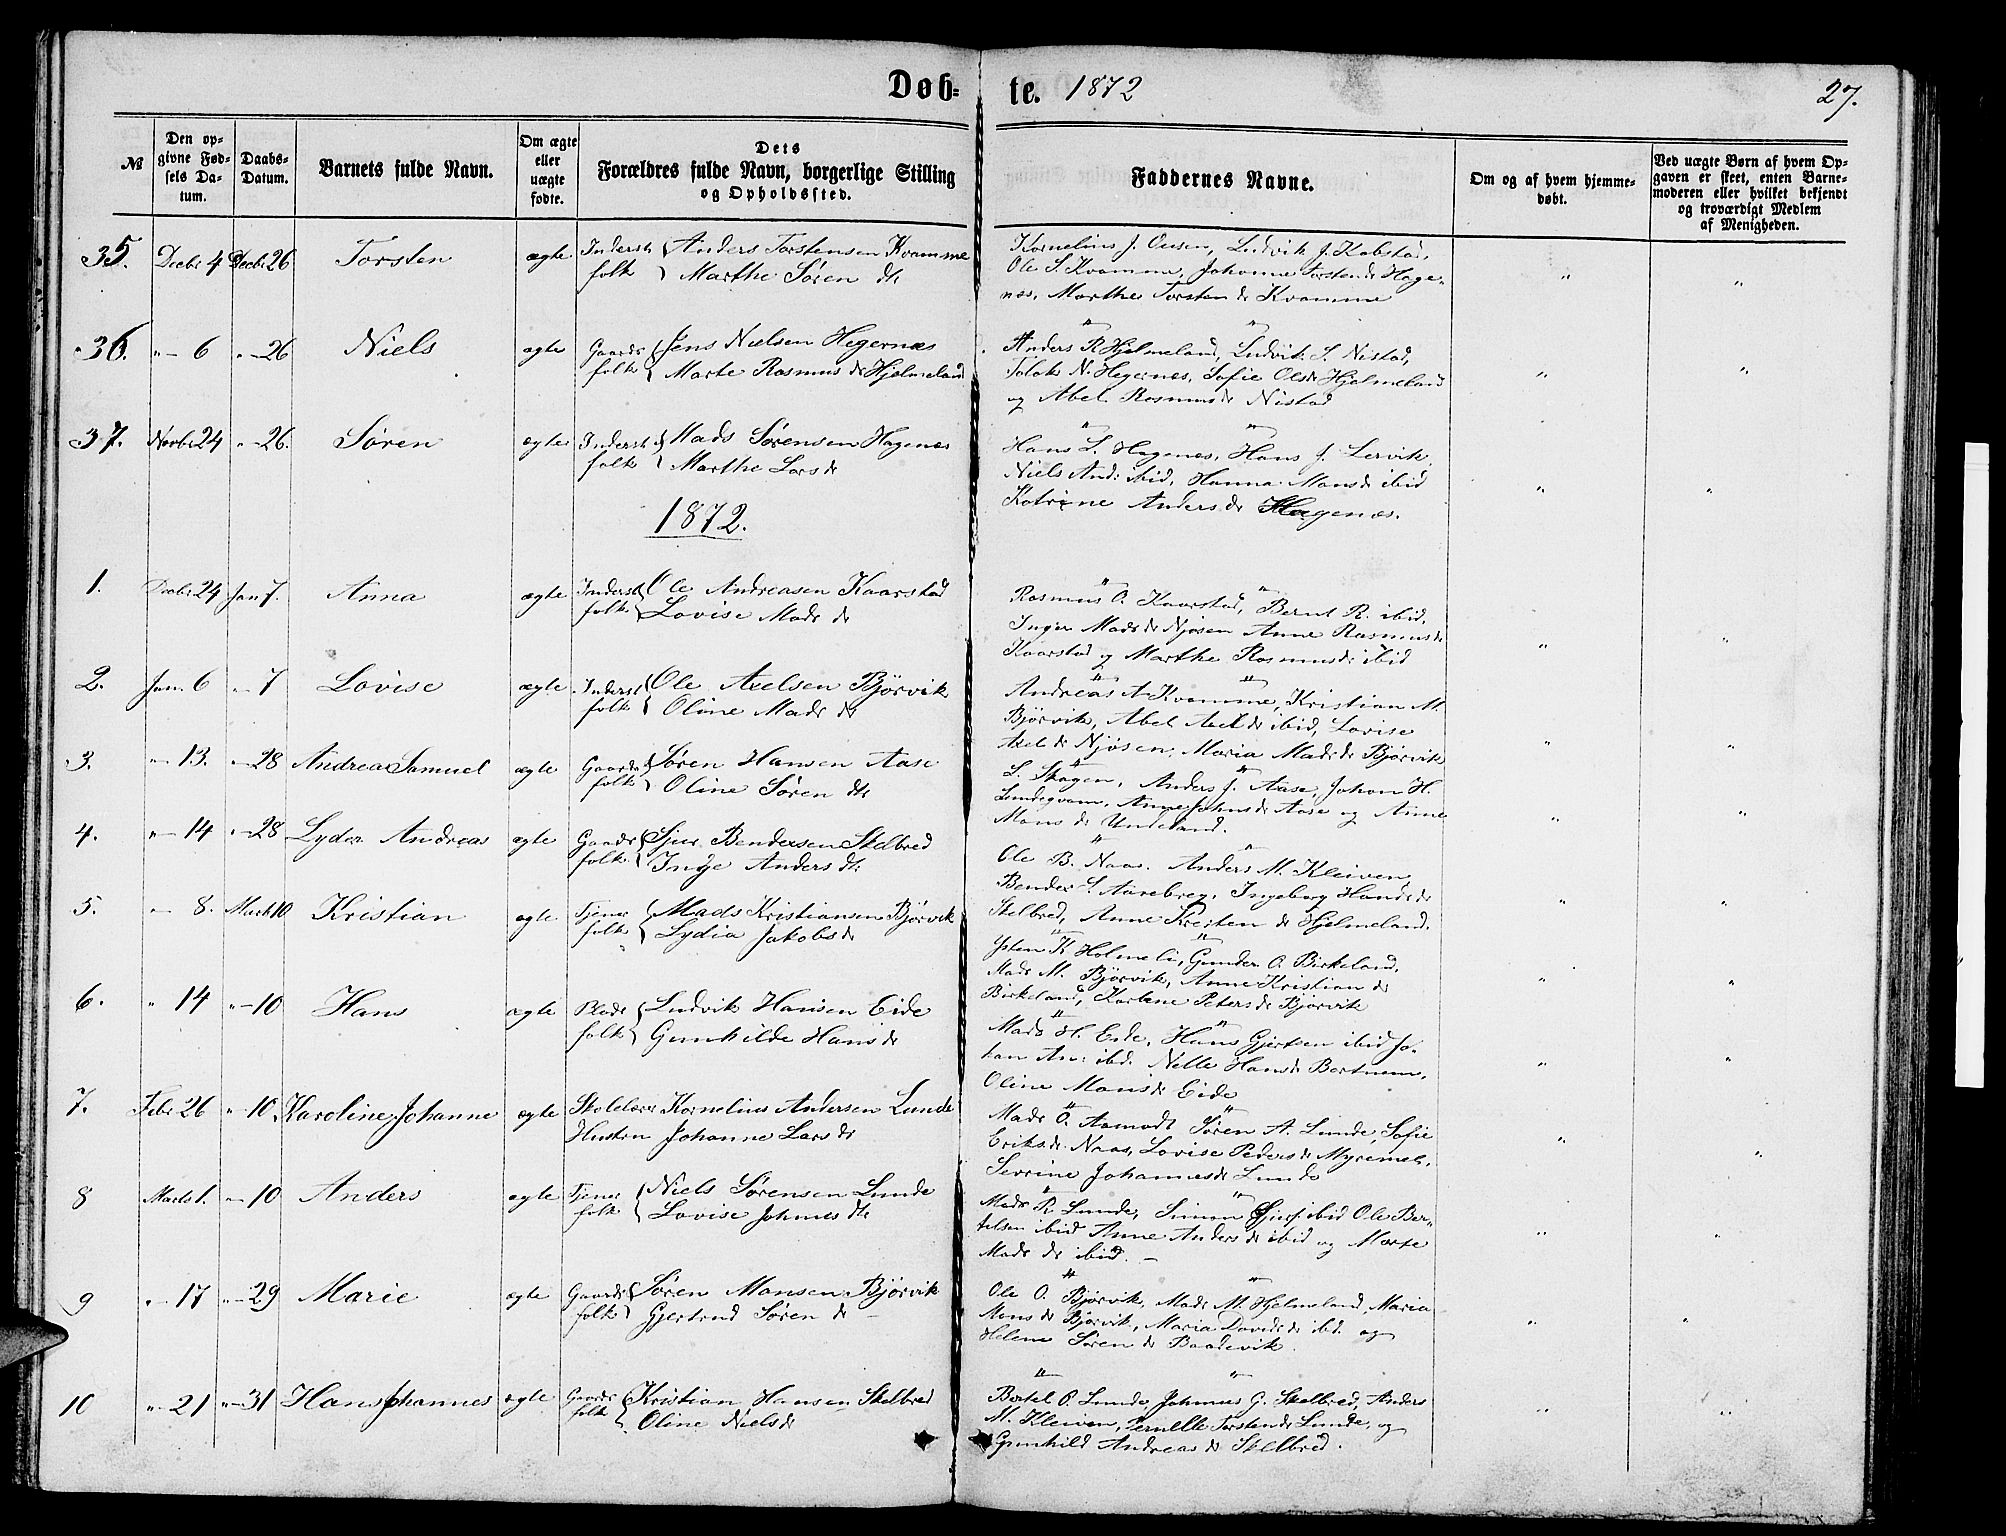 Døb= te. 1872
27.
№
Den op-
givne Fød-
sels Da-
tum.
Daabs-
Datum.
Barnets fulde Navn.
Om ægte
eller
uægte
fødte.
Dets
Forældres fulde Navn, borgerlige Stilling
og Opholdssted.
Faddernes Navne.
Om og af hvem hjemme-
døbt.
Ved uægte Børn af hvem Op-
gaven er skeet, enten Barne-
moderen eller hvilket bekjendt
og troværdigt Medlem
af Menigheden.
35. Decbr 4 Decbr 26 Torsten ægte Inderst folk Anders Torstensen Kvamme
Marthe Søren dtr
Kornelius J. Ousen, Ludvik J. Kobstad,
Ole S. Kvamme, Johanne Torstendr Hage-
næs, Marthe Torsten dr Kvamme
36. " 6 " 26 Niels ægte Gaards folk Jens Nielsen Hegernæs
Marte Rasmus dr Hjelmeland
Anders R. Hjelmeland, Ludvik S. Nistad,
Tolak N. Hegernes, Sofie Olsdr Hjelmeland
og Abel Rasmusdr Nistad
37. Novbr 24 " 26. Søren ægte Inderst folk Mads Sørensen Hagenæs
Marthe Larsdr
Hans L. Hagenæs, Hans J. Lervik,
Niels And: ibid, Hanna Monsdr ibid
Katrine Andersdr Hagenæs.
1872.
1. Decbr 24 Jan 7. Anna ægte Inderst folk Ole Andreasen Kaarstad
Lovise Mads dr
Rasmus O. Kaarstad, Bernt R. ibid.
Inger Madsdr Njøsen Anne Rasmusdr
Kaarstad og Marthe Rasmusdr ibid
2. Jan. 6 " 7 Lovise ægte Inderst folk Ole Axelsen Bjørvik
Oline Mads dr
Andreas A. Kvamme, Kristian M.
Bjørvik, Abel Axeldr ibid, Lovise
Axeldr Njøsen, Maria Madsdr Bjørvik
3. " 13. " 28 Andreas Samuel ægte Gaards folk Søren Hansen Aase
Oline Søren dtr
L. Skagen, Anders J. Aase, Johan H.
Lundegvam, Anne Johnsdr Aase og Anne
Mons dr Undeland.
4. " 14 " 28 Lyder Andreas ægte Gaards folk Sjur Bendersen Skelbred
Inge Anders dtr
Ole B. Naas. Anders M. Kleiven
Bender S. Aarebrey, Ingeborg Hansdr
Skelbred, Anne Kresten dr Hjelmeland.
5. " 8. Marts 10 Kristian ægte Tjener folk Mads Kristiansen Bjørvik
Lydia Jakobsdr
Ysten K. Holmeli, Gunder O. Birkeland,
Mads M. Bjørvik, Anne Kristian dr
Birkeland, Karlene Petersdr Bjørvik
6. " 14 " 10 Hans ægte Plads folk Ludvik Hansen Eide
Gunhilde Hansdr
Mads H. Eide, Hans Gjertsen ibid Jo-
han An: ibd. Nelle Hansdr Bortnem,
Oline Monsdr Eide
7. Febr 26 " 10 Karoline Johanne ægte Skolelærer Kornelius Andersen Lunde
Hustru Johanne Larsdr
Mads O. Aamodt Søren A. Lunde, Sofie
Eriksdr Naas, Lovise Pedersdr Myremel,
Sevrine Johannesdr Lunde
8 Marts 1. " 10 Anders ægte Tjener folk Niels Sørensen Lunde
Lovise Johnes dtr
Mads R. Lunde, Simon Sjurs. ibid Ole Ber-
telsen ibid Anne Anders dr ibid og Marte
Mads dr ibid. -
9 " 17 " 29 Marie ægte Gaards folk Søren Monsen Bjørvik
Gjertrud Søren dr -
Ole O. Bjørvik, Mads M. Hjelmeland, Maria
Mons dr Bjørvik, Maria Davidsdr ibd. og
Helene Søren dr Baadevik.
10 " 21 " 31 Hans Johannes ægte Gaards folk Kristian Hansen Skelbred
Oline Nielsdr
Bertel O. Lunde, Johannes G. Skelbred, Anders
M. Kleiven, Pernelle Torstendr Lunde, og
Gunhild Andreas dr Skelbred.